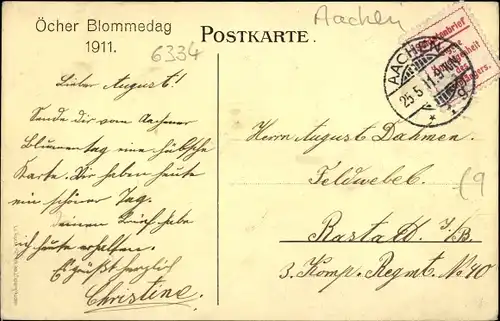 Öcher Blommedag
1911.
6334
Aachen
POSTKARTE.
AACHEN
25.5.11.9-10N
Lieber August!
Sende dir vom Aachener
Blumentag eine hübsche
Karte. Wir haben heute
ein schöner Tag.
Deinen Brief habe
ich heute erhalten.
Es grüßt herzlich
Christine.
Herrn August Dahmen.
Feldwebel.
Rastatt. i/B.
3. Komp. Regmt. No 40
£9